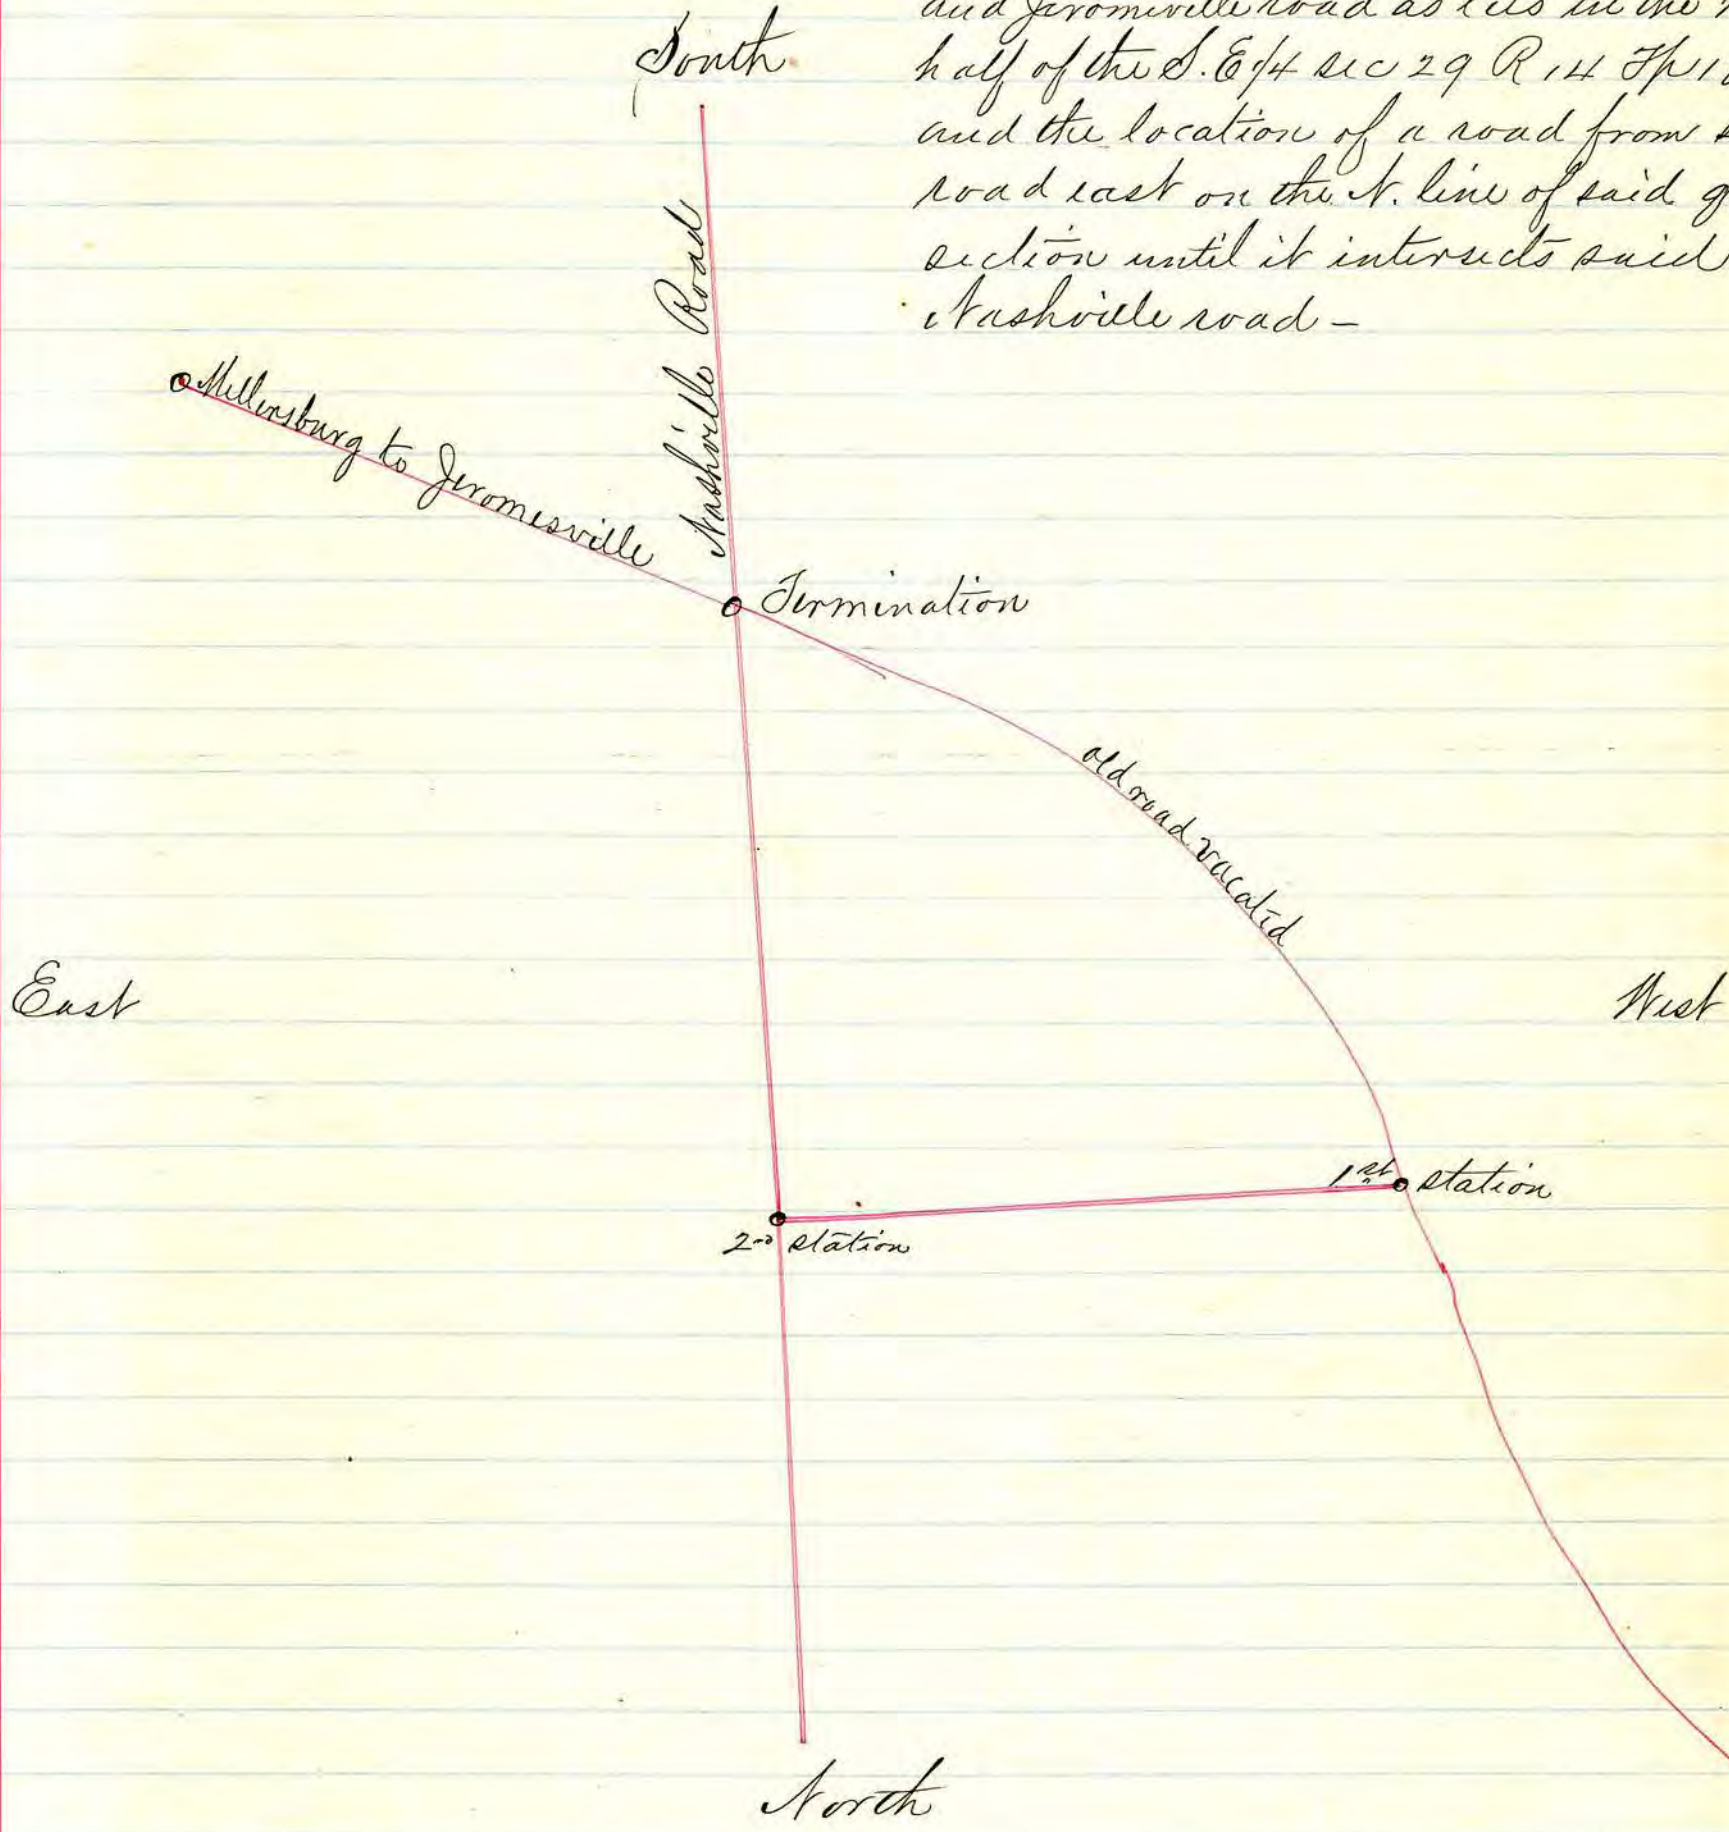 South
and Jeromeville road as lies in the
half of the S. E 1/4 sec 29 R 14 Tp 1
and the location of a road from
road east on the N. line of said
section until it intersects said
Nashville road -
Nashville Road
Millersburg to Jeromesville
Termination
old road vacated
East
West
1st station
2nd station
North